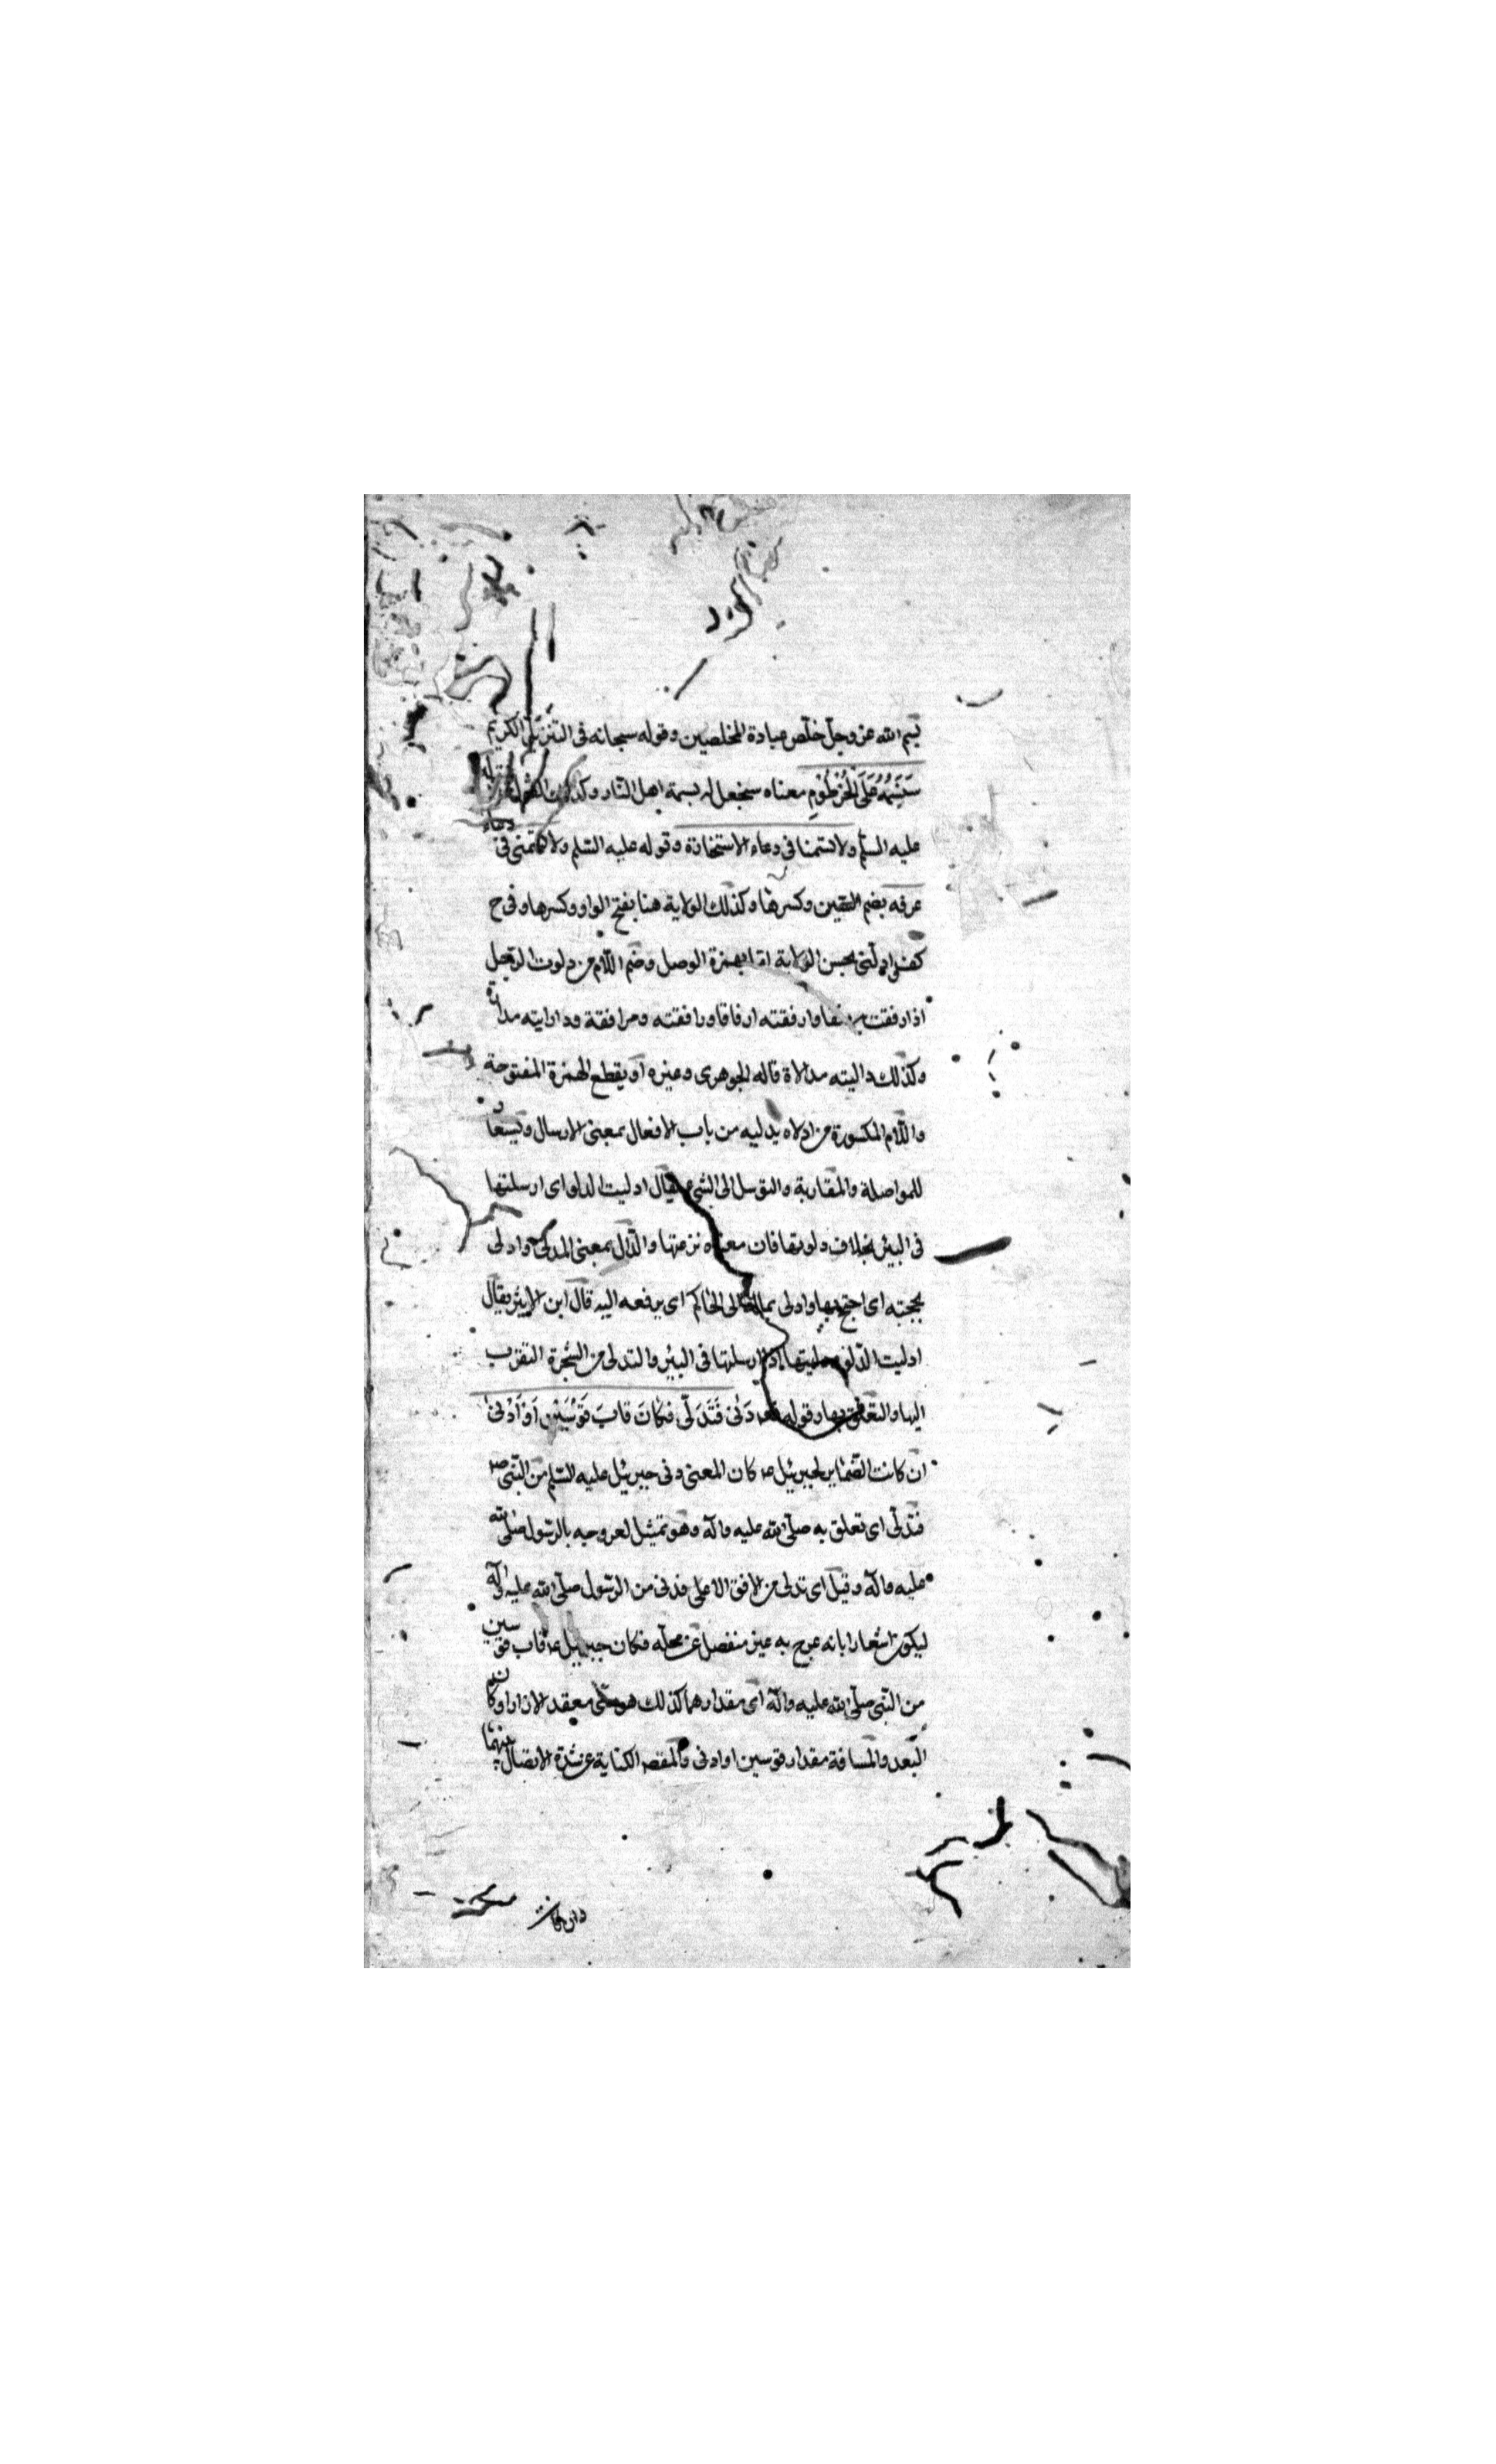 بسم الله عز وجل خلص عبادة المخلصين وقوله سبحانه فى التنزيل الكريم
سَنَسِمُهُ عَلَى الْخُرْطُومِ معناه سنجعل له سمة اهل النار وكذلك
عليه السلم ولا تسمنا فى دعاء الاستخارة وقوله عليه السلم ولا تسمنى فى دعاء
عرفه بضم السين وكسرها وكذلك الولاية هنا بفتح الواو وكسرها وفى ح
بحسن الولاية اما بهمزة الوصل وضم اللام من دلوت الرجل
اذا رفقت به وارفقته ارفاقا ورافقته ومرافقة وداراىته مداراة
وكذلك داليته مدالاة قاله الجوهرى وغيره او بقطع الهمزة المفتوحة
واللام المكسورة من ادلاه يدليه من باب الافعال بمعنى الارسال ويستعار
للمواصلة والمقاربة والتوسل الى الشئ يقال ادليت الدلو اى ارسلتها
فى البئر بخلاف دلوتها فان معناه نزعتها والدال بمعنى المدلى وادلى
بحجته اى احتج بها وادلى بماله الى الحاكم اى يرفعه اليه قال ابن الاثير يقال
ادليت الدلو ودليتها اذا ارسلتها فى البئر والتدلى من الشجرة التقرب
اليها والتعلق بها وقوله دَنىٰ فَتَدَلّىٰ فكانَ قابَ قَوْسَيْنِ اَوْ اَدْنىٰ
ان كانت الضماير لجبرئيل ع كان المعنى دنى جبرئيل عليه السلم من النبى ص
فتدلى اى تعلق به صلى الله عليه وآله وهو تمثيل لعروجه بالرسول صلى الله
عليه وآله وقيل اى تدلى من الافق الاعلى فدنى من الرسول صلى الله عليه وآله
ليكون اشعارا بانه عرج به غير منفصل عن محله فكان جبرئيل ع قاب قوسين
من النبى صلى الله عليه وآله اى مقدارهما كذلك هو منى معقد الازار او كان
البعد والمسافة مقدار قوسين او ادنى والمقصد الكناية عن شدة الاتصال بينهما